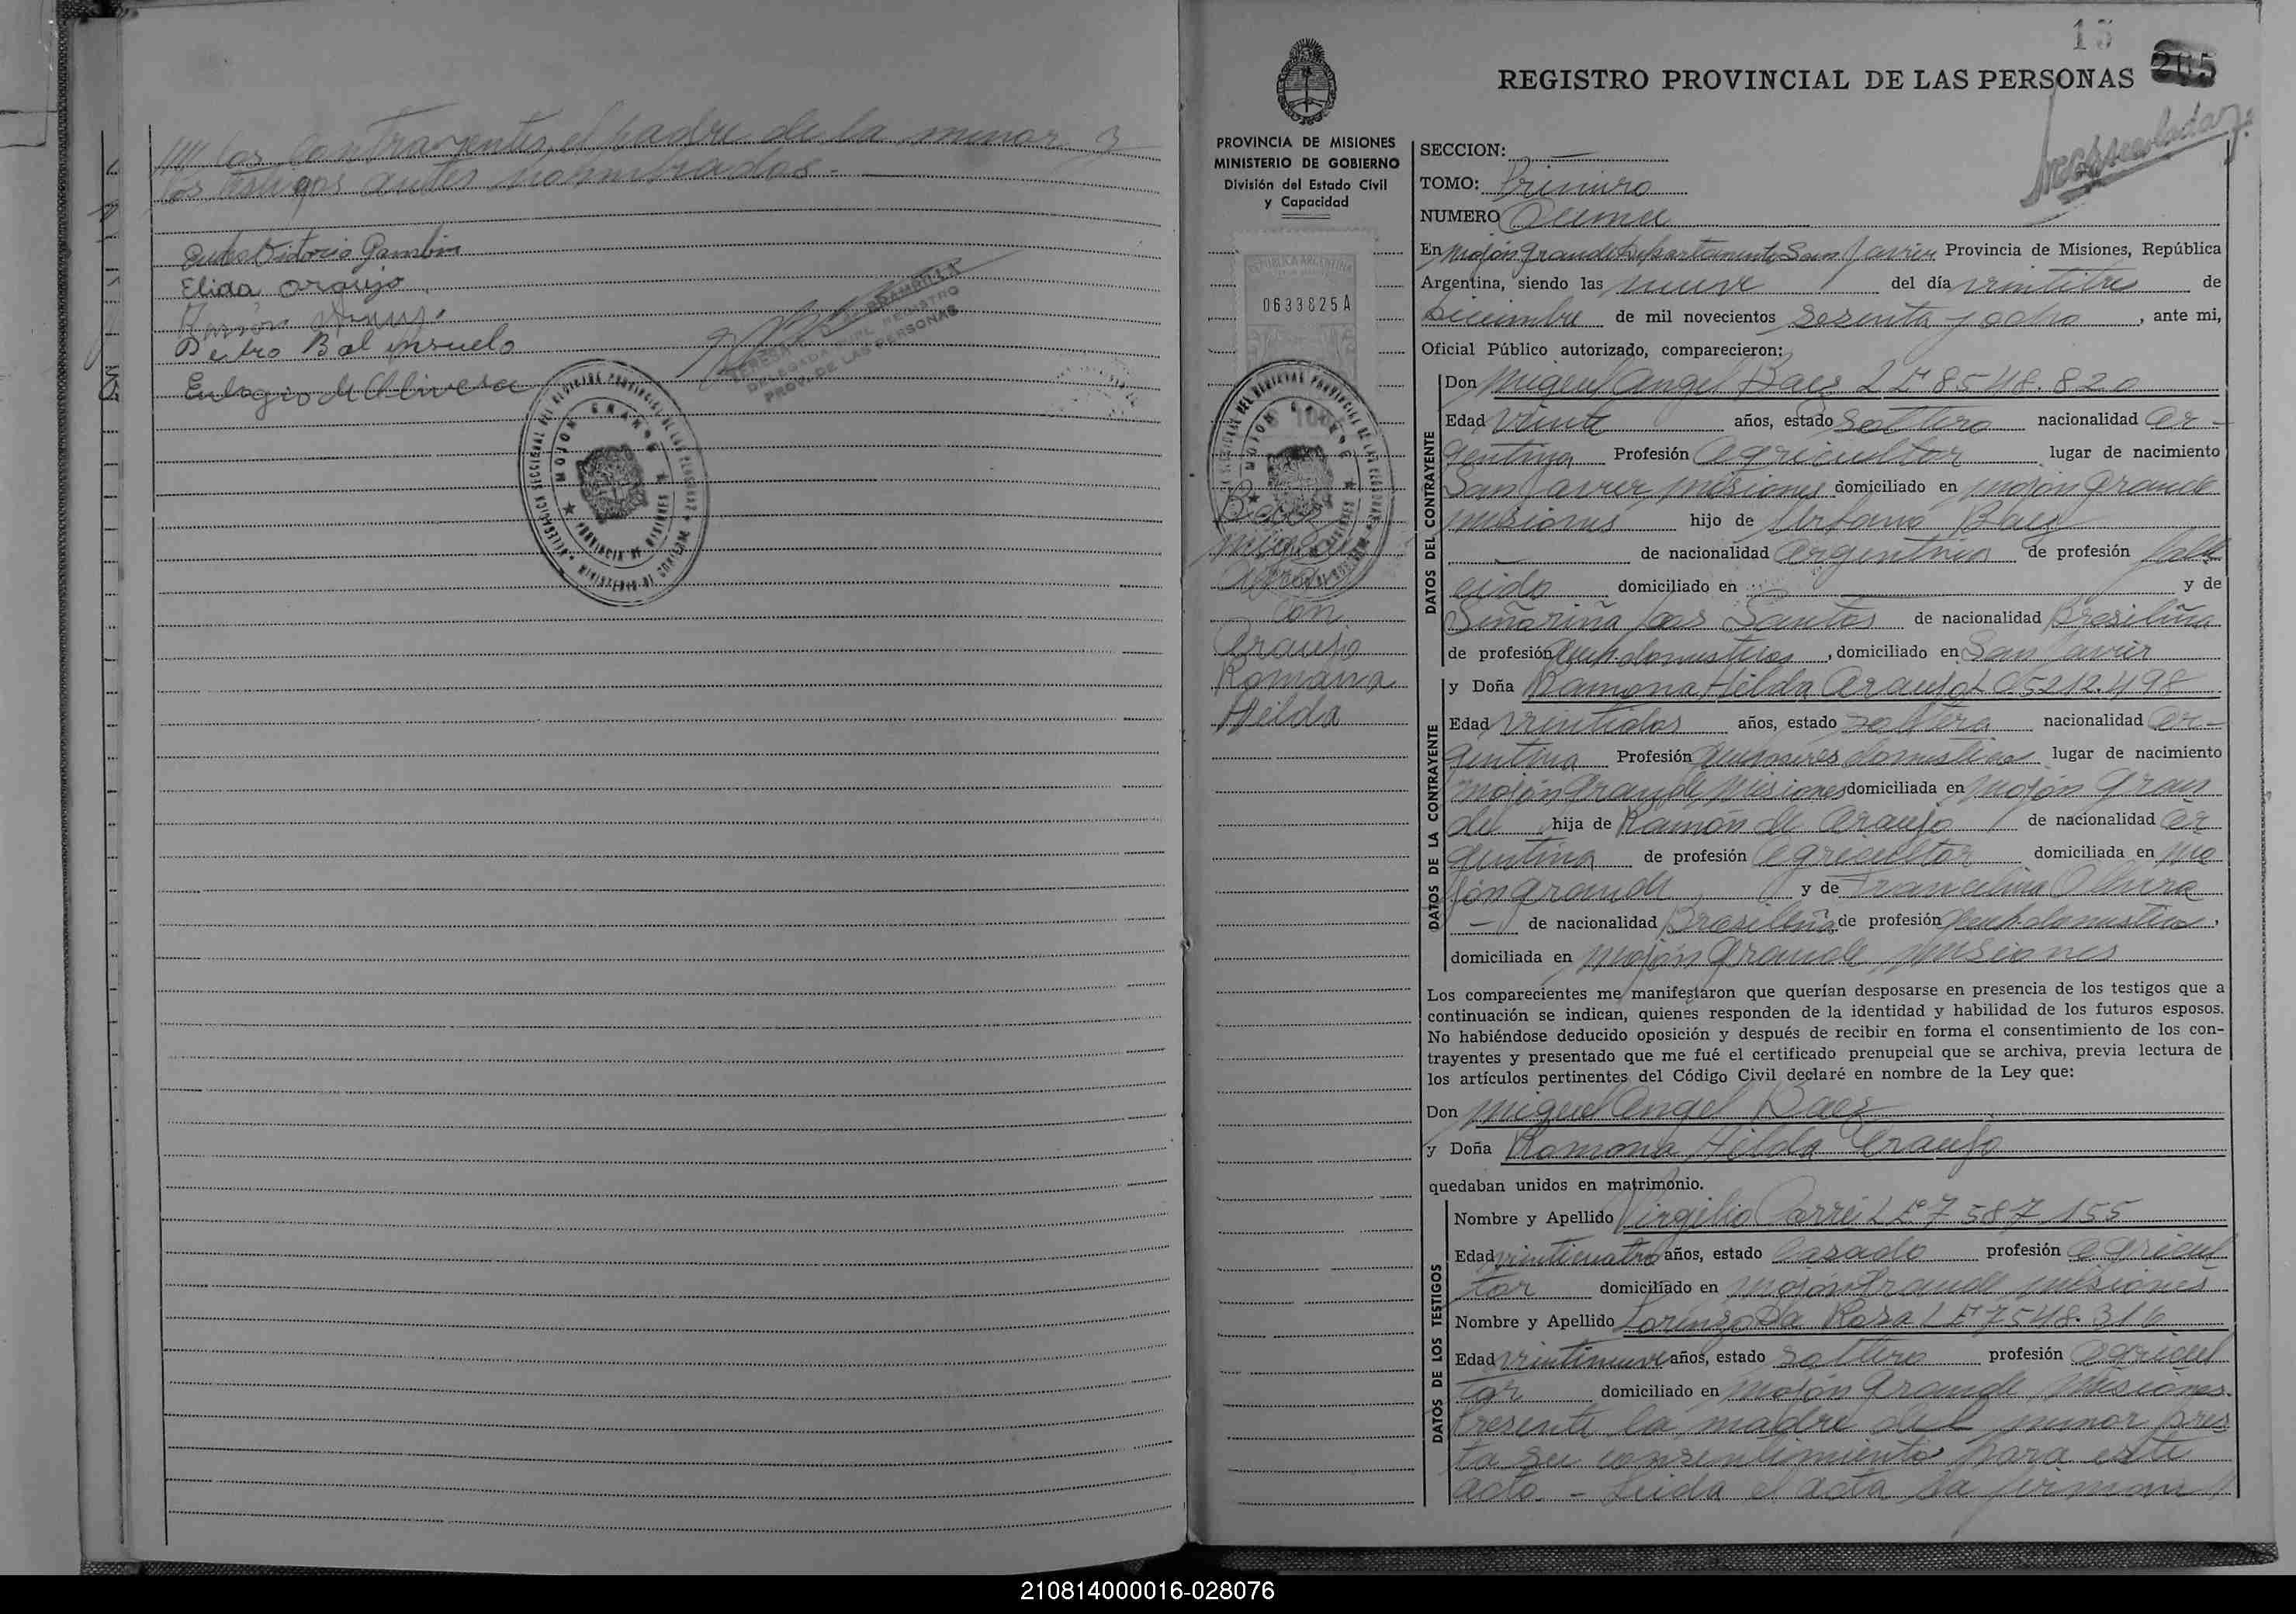 //// los contrayentes, el padre de la menor y
los testigos antes nombrados. -
Vidorio Gambin
Elida Araujo
Pedro Balinsuelo
Eulogio de Olivera
PROV. DE LAS PERSONAS
MOJON GRANDE
PROVINCIA DE MISIONES
15
205
REGISTRO PROVINCIAL DE LAS PERSONAS
PROVINCIA DE MISIONES
MINISTERIO DE GOBIERNO
División del Estado Civil
y Capacidad
REPUBLICA ARGENTINA
0633825A
Baez
Miguel
Angel
con
Araujo
Ramona
Hilda
SECCION:
TOMO: Primero
NUMERO Quince
En Mojón Grande Departamento San Javier Provincia de Misiones, República
Argentina, siendo las nueve del día veintitres de
Diciembre de mil novecientos sesenta y ocho, ante mi,
Oficial Público autorizado, comparecieron:
DATOS DEL CONTRAYENTE
Don Miguel Angel Baez L Eº 8548.820
Edad veinte años, estado soltero nacionalidad Ar-
gentina Profesión Agricultor lugar de nacimiento
San Javier Misiones domiciliado en Mojón Grande
Misiones hijo de Urbano Baez
de nacionalidad Argentina de profesión falle
cido domiciliado en y de
Siñoriña dos Santos de nacionalidad Brasileña
de profesión Queh. domesticos, domiciliado en San Javier
DATOS DE LA CONTRAYENTE
y Doña Ramona Hilda Araujo L C 5212.498
Edad veintidos años, estado soltera nacionalidad Ar-
gentina Profesión Quehaceres domesticos lugar de nacimiento
Mojón Grande Misiones domiciliada en Mojón Gran
de hija de Ramón de Araujo de nacionalidad Ar
gentina de profesión Agricultor domiciliada en Mo
jón Grande y de Francelina Olivera
- de nacionalidad Brasileña de profesión queh. domestico,
domiciliada en Mojón Grande, Misiones
Los comparecientes me manifestaron que querían desposarse en presencia de los testigos que a
continuación se indican, quienes responden de la identidad y habilidad de los futuros esposos.
No habiéndose deducido oposición y después de recibir en forma el consentimiento de los con-
trayentes y presentado que me fué el certificado prenupcial que se archiva, previa lectura de
los artículos pertinentes del Código Civil declaré en nombre de la Ley que:
Don Miguel Angel Baez
y Doña Ramona Hilda Araujo
quedaban unidos en matrimonio.
DATOS DE LOS TESTIGOS
Nombre y Apellido Virgilio Carré L Eº 7587155
Edad veinticuatro años, estado casado profesión Agricul
tor domiciliado en Mojón Grande Misiones
Nombre y Apellido Lorenzo Da Rosa L Eº 7548.316
Edad veintinueve años, estado soltero profesión Agricul
tor domiciliado en Mojón Grande, Misiones.
Presente la madre del menor pres
ta su consentimiento para este
acto. - Leida el acta la firman //
210814000016-028076